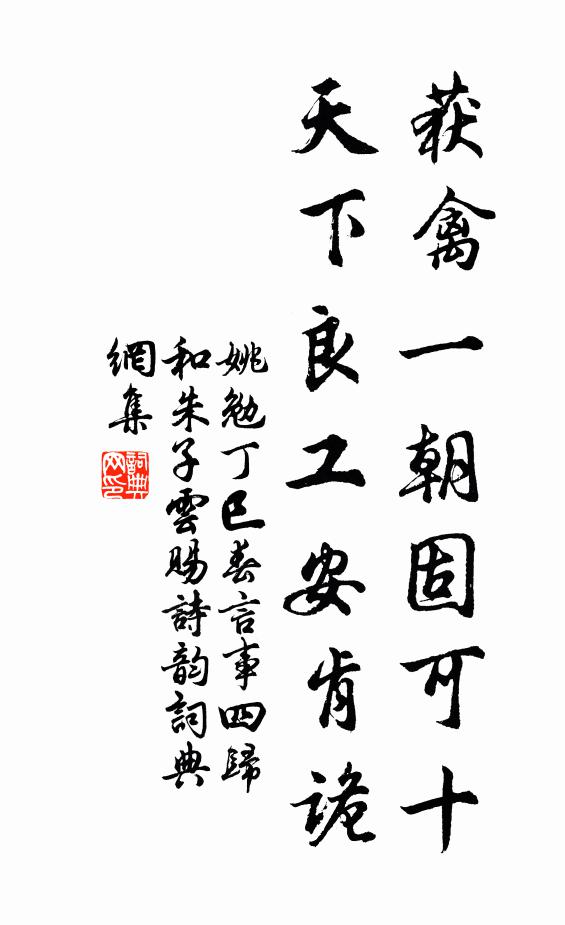 获禽一朝固可十
天下良工安肯詭
姚勉丁巳春言事四歸
和朱子雲賜詩韵詞典
網集
詞典網印